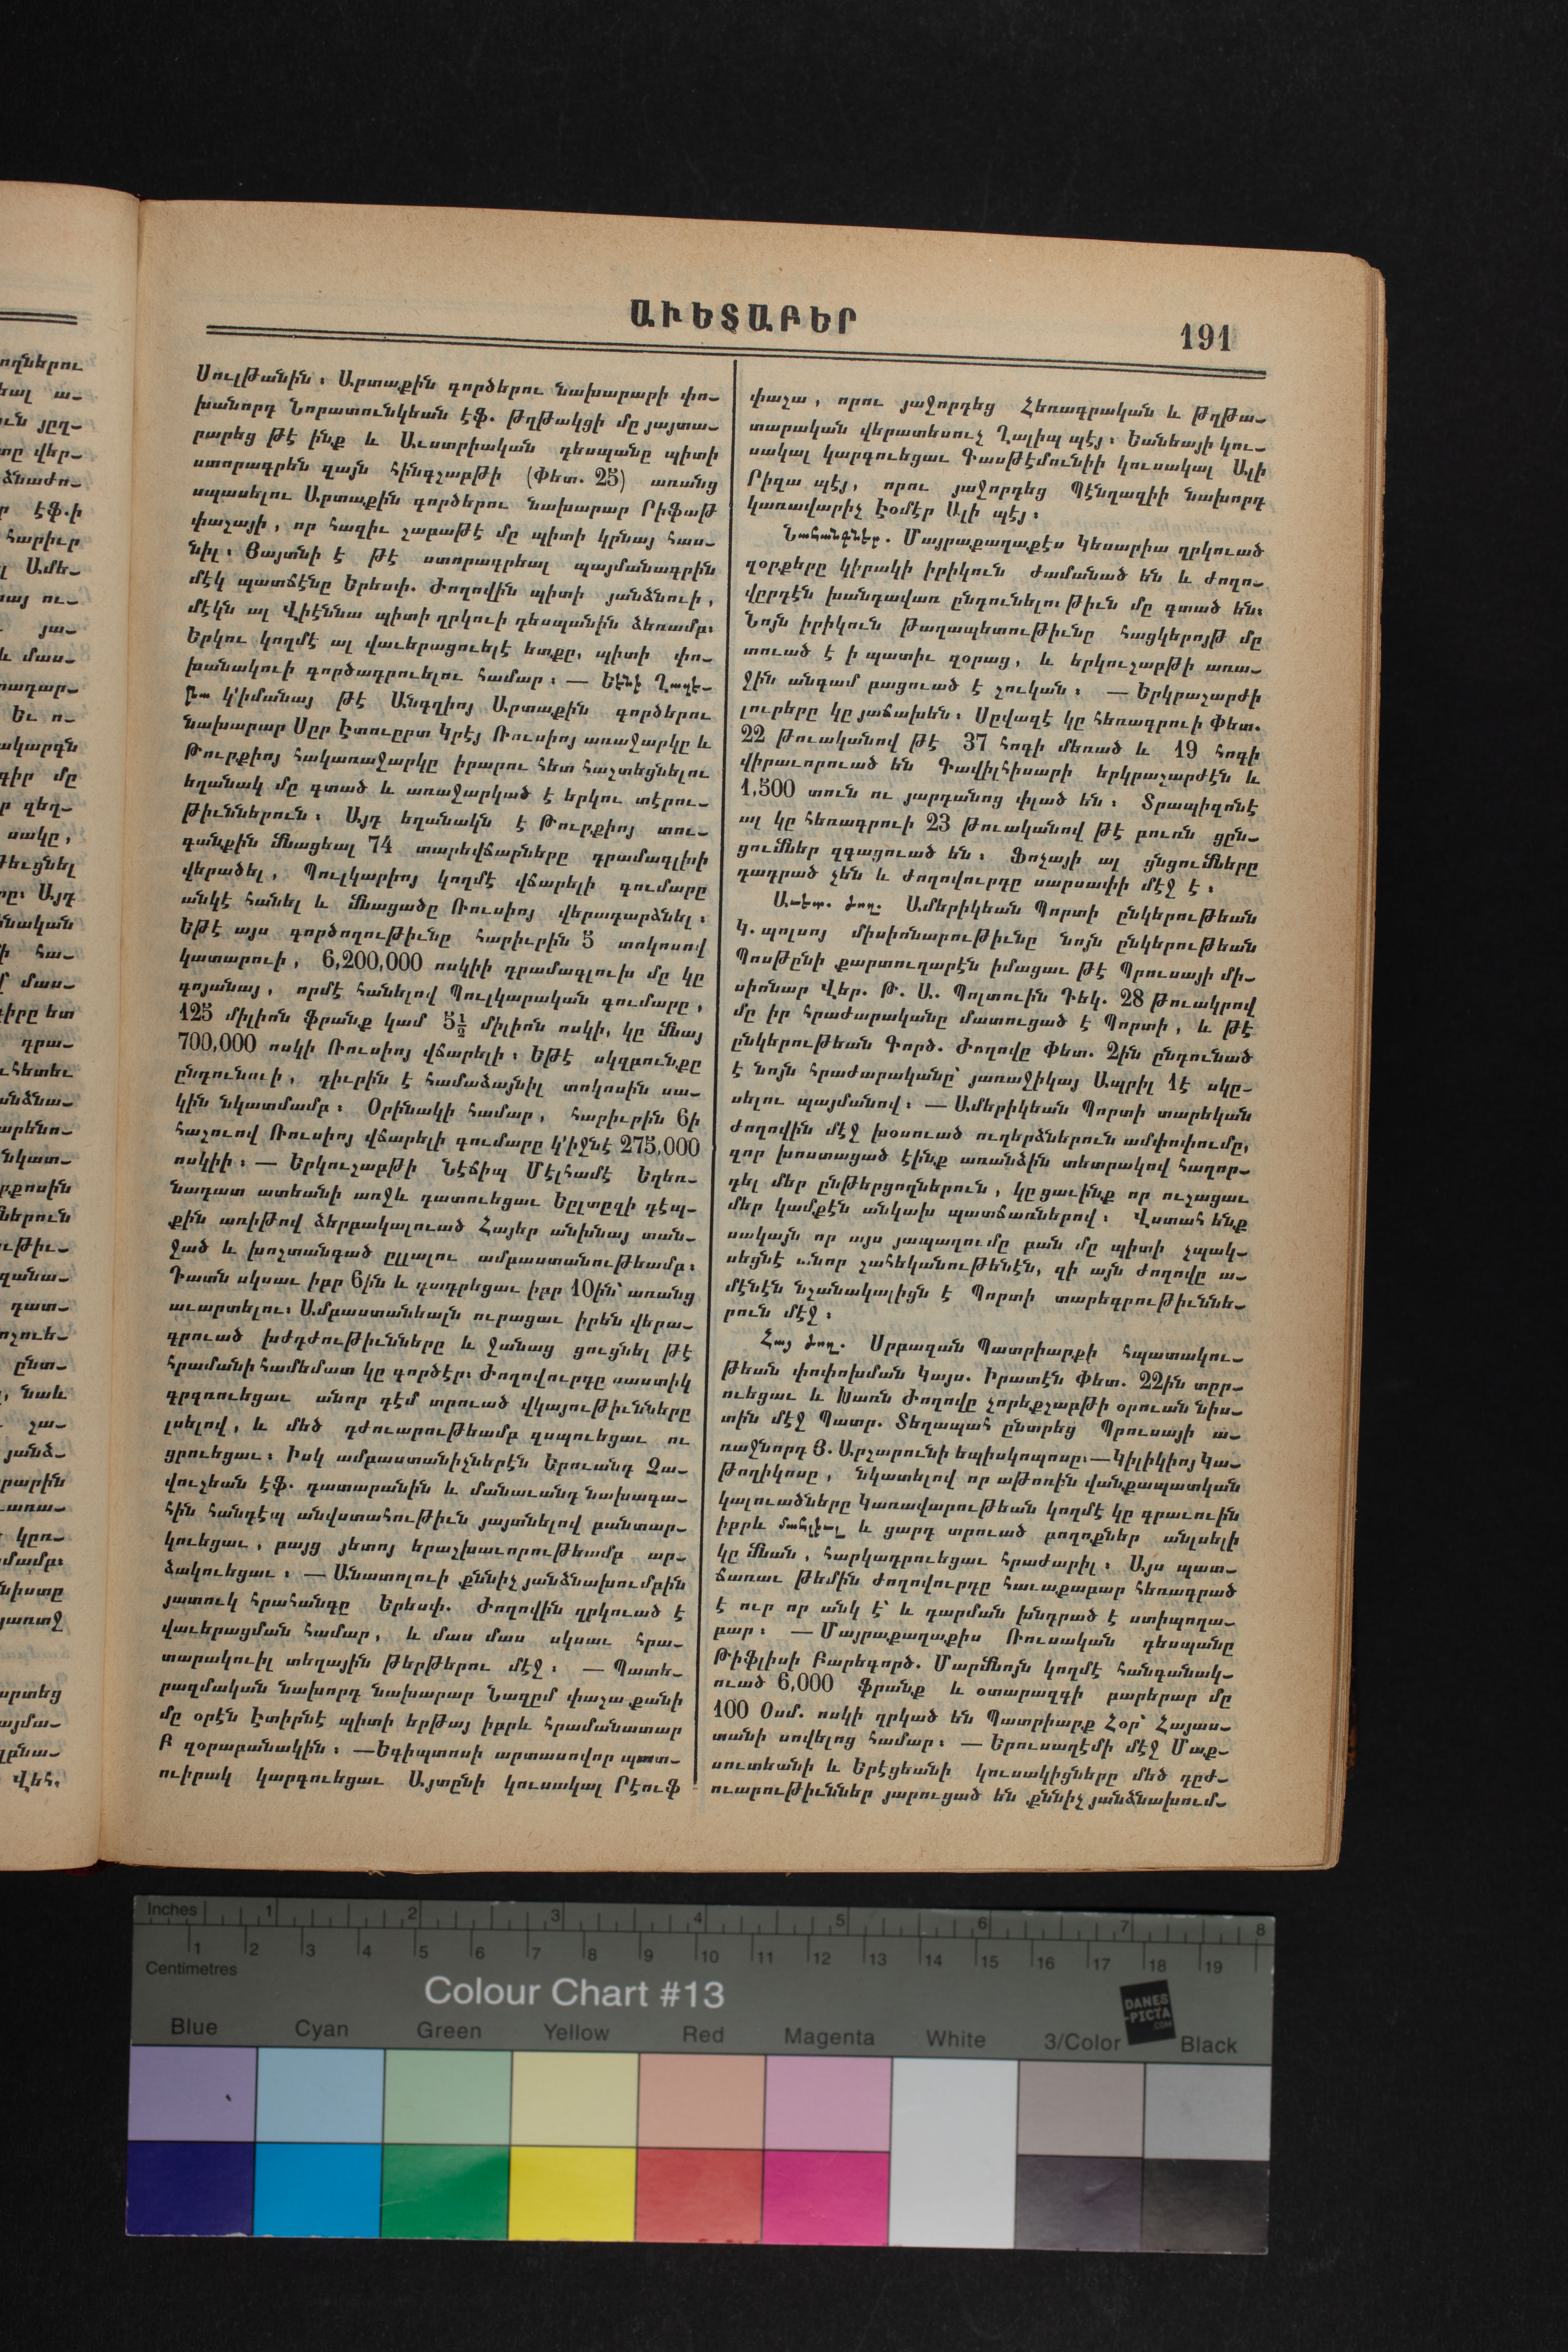 ԱՒԵՏԱԲԵՐ
191
Սուլթանին։ Արտաքին գործերու նախարարի փո-
խանորդ Նորատունկեան էֆ. թղթակցի մը յայտա-
րարեց թէ ինք և Աւստրիական դեսպանը պիտի
ստորագրեն զայն հինգշաբթի (Փետ. 25) առանց
սպասելու Արտաքին գործերու նախարար Րիֆաթ
փաշայի, որ հազիւ շաբաթէ մը պիտի կրնայ հաս-
նիլ։ Յայտնի է թէ ստորագրեալ պայմանագրին
մէկ պատճէնը Երեսփ. Ժողովին պիտի յանձնուի,
մէկն ալ Վիէննա պիտի ղրկուի դեսպանին ձեռամբ։
Երկու կողմէ ալ վաւերացուելէ ետքը, պիտի փո-
խանակուի գործադրուելու համար։ — Եէնի Ղազէ-
թա կ՚իմանայ թէ Անգղիոյ Արտաքին գործերու
նախարար Սըր Էտուըրտ Կրէյ Ռուսիոյ առաջարկը և
Թուրքիոյ հակառաջարկը իրարու հետ հաշտեցնելու
եղանակ մը գտած և առաջարկած է երկու տէրու-
թիւններուն։ Այդ եղանակն է Թուրքիոյ տու-
գանքին մնացեալ 74 տարեվճարները դրամագլխի
վերածել, Պուլկարիոյ կողմէ վճարելի գումարը
անկէ հանել և մնացածը Ռուսիոյ վերադարձնել։
Եթէ այս գործողութիւնը հարիւրին 5 տոկոսով
կատարուի, 6,200,000 ոսկիի դրամագլուխ մը կը
գոյանայ, որմէ հանելով Պուլկարական գումարը,
125 միլիոն ֆրանք կամ 5½ միլիոն ոսկի, կը մնայ
700,000 ոսկի Ռուսիոյ վճարելի։ Եթէ սկզբունքը
ընդունուի, դիւրին է համաձայնիլ տոկոսին սա-
կին նկատմամբ։ Օրինակի համար, հարիւրին 6ի
հաշուով Ռուսիոյ վճարելի գումարը կ՚իջնէ 275,000
ոսկիի։ — Երկուշաբթի Նէճիպ Մէլհամէ Եղեռ-
նադատ ատեանի առջև դատուեցաւ Եըլտըզի դէպ-
քին առիթով ձերբակալուած Հայեր անխնայ տան-
ջած և խոշտանգած ըլլալու ամբաստանութեամբ։
Դատն սկսաւ իբր 6ին և դադրեցաւ իբր 10ին՝ առանց
աւարտելու։ Ամբաստանեալն ուրացաւ իրեն վերա-
գրուած խժդժութիւնները և ջանաց ցուցնել թէ
հրամանի համեմատ կը գործէր։ Ժողովուրդը սաստիկ
գրգռուեցաւ անոր դէմ տրուած վկայութիւնները
լսելով, և մեծ դժուարութեամբ զսպուեցաւ ու
ցրուեցաւ։ Իսկ ամբաստանիչներէն Երուանդ Զա-
վուշեան էֆ. դատարանին և մանաւանդ նախագա-
հին հանդէպ անվստահութիւն յայտնելով բանտար-
կուեցաւ, բայց յետոյ երաշխաւորութեամբ ար-
ձակուեցաւ։ — Անատոլուի քննիչ յանձնախումբին
յատուկ հրահանգը Երեսփ. Ժողովին ղրկուած է
վաւերացման համար, և մաս մաս սկսաւ հրա-
տարակուիլ տեղային թերթերու մէջ։ — Պատե-
րազմական նախորդ նախարար Նազըմ փաշա քանի
մը օրէն Էտիրնէ պիտի երթայ իբրև հրամանատար
Բ զօրաբանակին։ —Եգիպտոսի արտասովոր պատ-
ուիրակ կարգուեցաւ Այտընի կուսակալ Րէուֆ
փաշա, որու յաջորդեց Հեռագրական և Թղթա-
տարական վերատեսուչ Ղալիպ պէյ։ Եանեայի կու-
սակալ կարգուեցաւ Գասթէմունիի կուսակալ Ալի
Րիզա պէյ, որու յաջորդեց Պէնղազիի նախորդ
կառավարիչ Էօմէր Ալի պէյ։
Նահանգներ. Մայրաքաղաքէս Կեսարիա ղրկուած
զօրքերը կիրակի իրիկուն ժամանած են և ժողո-
վըրդէն խանդավառ ընդունելութիւն մը գտած են։
Նոյն իրիկուն Թաղապետութիւնը հացկերոյթ մը
տուած է ի պատիւ զօրաց, և երկուշաբթի առա-
ջին անգամ բացուած է շուկան։ — Երկրաշարժի
լուրերը կը յաճախեն։ Սըվազէ կը հեռագրուի Փետ.
22 թուականով թէ 37 հոգի մեռած և 19 հոգի
վիրաւորուած են Գավիլհիսարի երկրաշարժէն և
1,500 տուն ու յարդանոց փլած են։ Տրապիզոնէ
ալ կը հեռագրուի 23 թուականով թէ բուռն ցըն-
ցումներ զգացուած են։ Ֆոչայի ալ ցնցումները
դադրած չեն և ժողովուրդը սարսափի մէջ է։
Աւետ. ժող. Ամերիկեան Պորտի ընկերութեան
Կ. պոլսոյ միսիոնարութիւնը նոյն ընկերութեան
Պոսթընի քարտուղարէն իմացաւ թէ Պրուսայի մի-
սիոնար Վեր. Թ. Ա. Պոլտուին Դեկ. 28 թուակրով
մը իր հրաժարականը մատուցած է Պորտի, և թէ
ընկերութեան Գործ. Ժողովը Փետ. 2ին ընդունած
է նոյն հրաժարականը՝ յառաջիկայ Ապրիլ 1է սկը-
սելու պայմանով։ — Ամերիկեան Պորտի տարեկան
ժողովին մէջ խօսուած ուղերձներուն ամփոփումը,
զոր խոստացած էինք առանձին տետրակով հաղոր-
դել մեր ընթերցողներուն, կը ցաւինք որ ուշացաւ
մեր կամքէն անկախ պատճառներով։ Վստահ ենք
սակայն որ այս յապաղումը բան մը պիտի չպակ-
սեցնէ անոր շահեկանութենէն, զի այն ժողովը ա-
մէնէն նշանակալիցն է Պորտի տարեգրութիւննե-
րուն մէջ։
Հայ ժող. Սրբազան Պատրիարքի հպատակու-
թեան փոփոխման Կայս. Իրատէն Փետ. 22ին տըր-
ուեցաւ և Խառն Ժողովը չորեքշաբթի օրուան նիս-
տին մէջ Պատր. Տեղապահ ընտրեց Պրուսայի ա-
ռաջնորդ Յ. Արշարունի եպիսկոպոսը։—Կիլիկիոյ Կա-
թողիկոսը, նկատելով որ աթոռին վանքապատկան
կալուածները Կառավարութեան կողմէ կը գրաւուին
իբրև մահլիւլ և ցարդ տրուած բողոքներ անլսելի
կը մնան, հարկադրուեցաւ հրաժարիլ։ Այս պատ-
ճառաւ թեմին ժողովուրդը հաւաքաբար հեռագրած
է ուր որ անկ է՝ և դարման խնդրած է ստիպողա-
բար։ — Մայրաքաղաքիս Ռուսական դեսպանը
Թիֆլիսի Բարեգործ. Մարմնոյն կողմէ հանգանակ-
ուած 6,000 ֆրանք և օտարազգի բարերար մը
100 Օսմ. ոսկի ղրկած են Պատրիարք Հօր՝ Հայաս-
տանի սովելոց համար։ — Երուսաղէմի մէջ Մաք-
սուտեանի և Երէցեանի կուսակիցները մեծ դըժ-
ուարութիւններ յարուցած են քննիչ յանձնախում-
Inches 1 2 3 4 5 6 7 8
1 2 3 4 5 6 7 8 9 10 11 12 13 14 15 16 17 18 19
Centimetres
Colour Chart #13
DANES
-PICTA
.COM
Blue Cyan Green Yellow Red Magenta White 3/Color Black